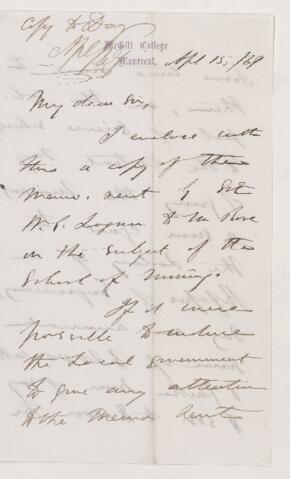 Copy to Day
McGill College,
Montreal, Apl 15, /69
My dear Sir,
I enclose with
this a copy of the
Memo. sent by Sir
W. E. Logan to Mr Rose
on the subject of the
School of Mining.
If it were
possible to induce
the Local government
to give any attention
to the Memo sent